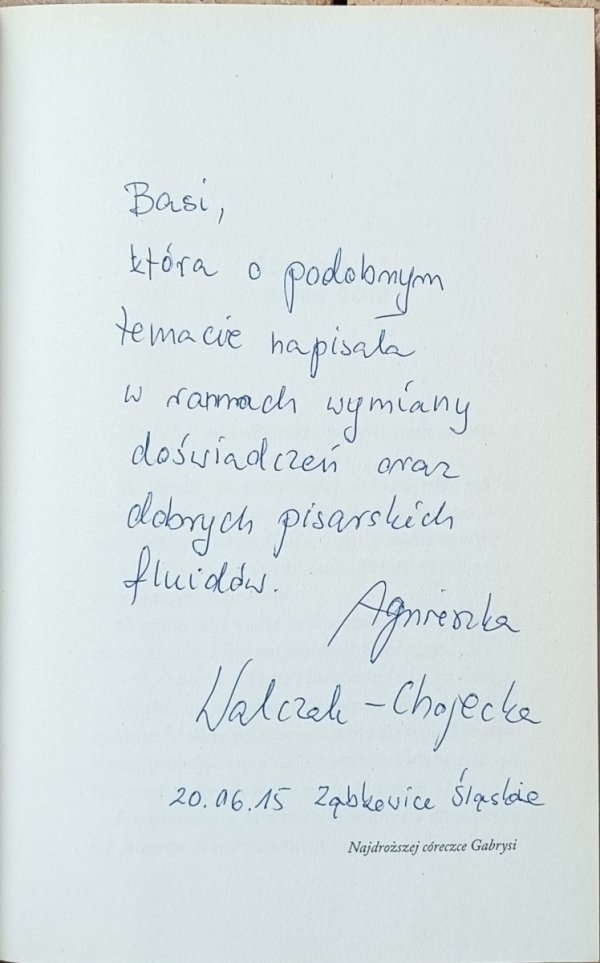 Basi,
która o podobnym
temacie napisała
w ramach wymiany
doświadczeń oraz
dobrych pisarskich
fluidów.
Agnieszka
Walczak-Chojecka
20.06.15 Ząbkowice Śląskie
Najdroższej córeczce Gabrysi